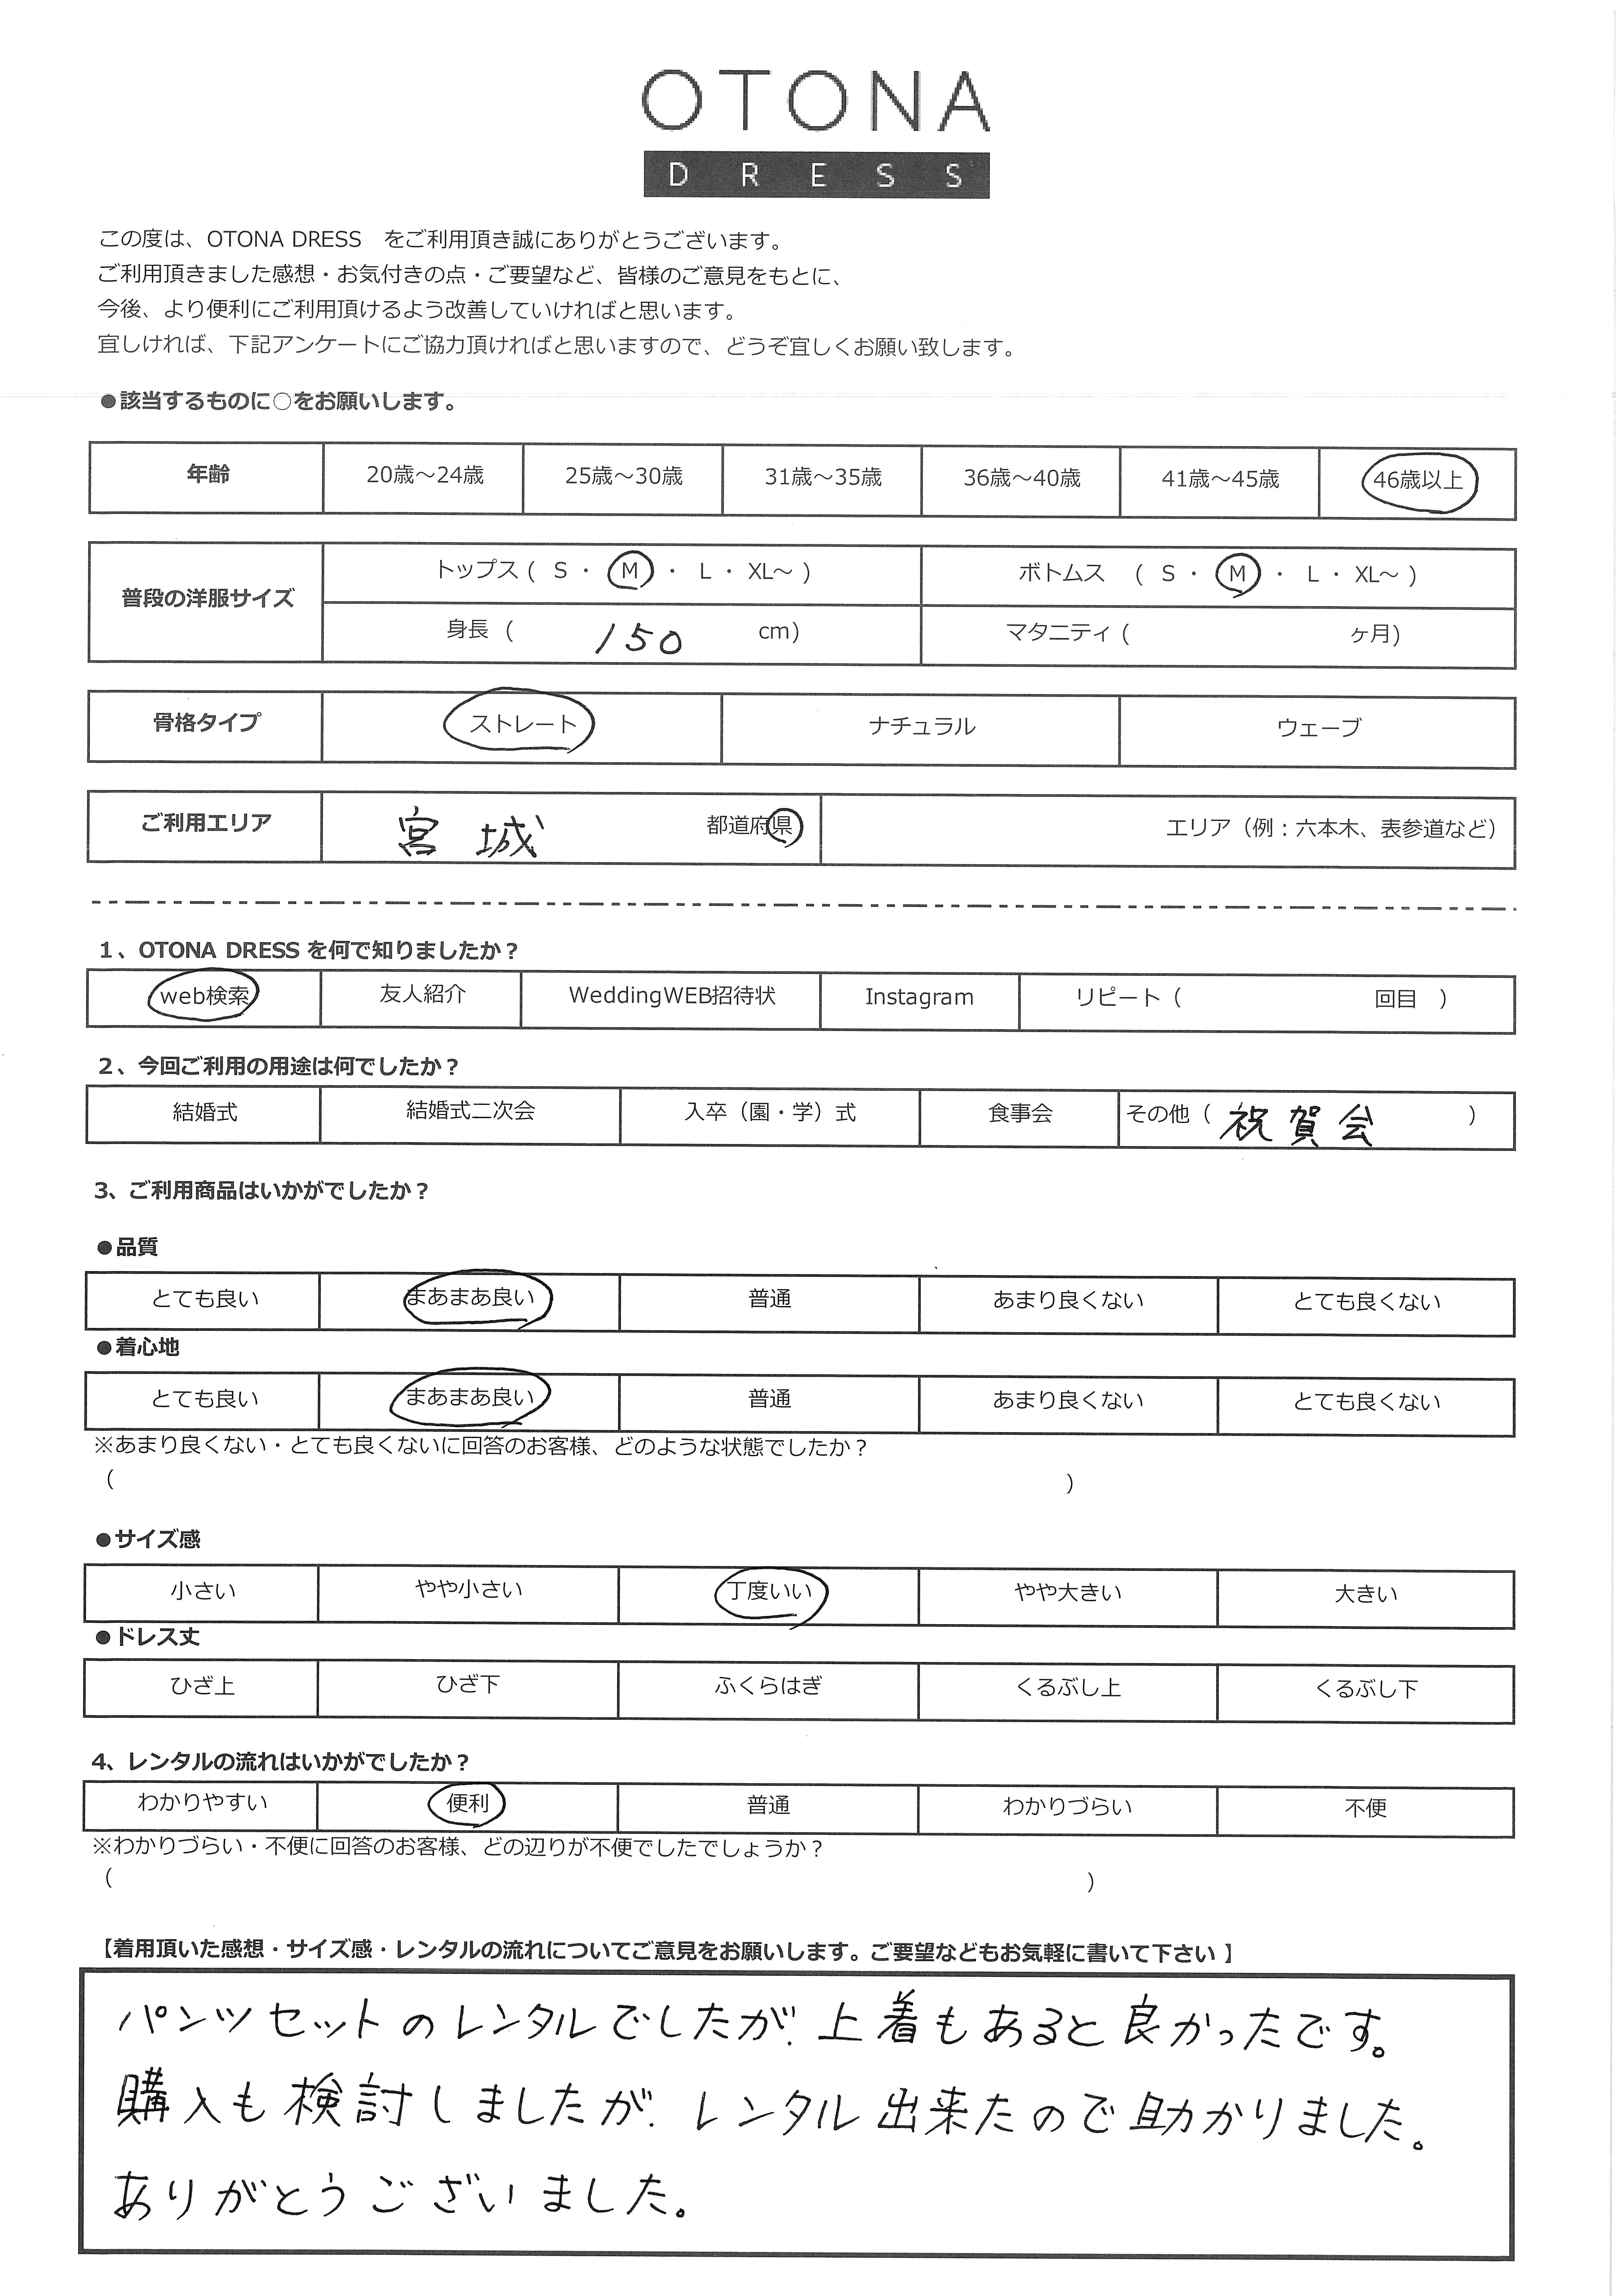 OTONA
DRESS
この度は、OTONA DRESS　をご利用頂き誠にありがとうございます。
ご利用頂きました感想・お気付きの点・ご要望など、皆様のご意見をもとに、
今後、より便利にご利用頂けるよう改善していければと思います。
宜しければ、下記アンケートにご協力頂ければと思いますので、どうぞ宜しくお願い致します。
●該当するものに○をお願いします。
年齢 20歳～24歳 25歳～30歳 31歳～35歳 36歳～40歳 41歳～45歳 46歳以上
普段の洋服サイズ トップス ( S ・ M ・ L ・ XL～ ) ボトムス ( S ・ M ・ L ・ XL～ )
身長 ( 150 cm) マタニティ ( ヶ月)
骨格タイプ ストレート ナチュラル ウェーブ
ご利用エリア 宮城 都道府県 エリア（例：六本木、表参道など）
1、OTONA DRESS を何で知りましたか？
web検索 友人紹介 WeddingWEB招待状 Instagram リピート（ 回目 ）
2、今回ご利用の用途は何でしたか？
結婚式 結婚式二次会 入卒（園・学）式 食事会 その他（ 祝賀会 ）
3、ご利用商品はいかがでしたか？
●品質
とても良い まあまあ良い 普通 あまり良くない とても良くない
●着心地
とても良い まあまあ良い 普通 あまり良くない とても良くない
※あまり良くない・とても良くないに回答のお客様、どのような状態でしたか？
（ ）
●サイズ感
小さい やや小さい 丁度いい やや大きい 大きい
●ドレス丈
ひざ上 ひざ下 ふくらはぎ くるぶし上 くるぶし下
4、レンタルの流れはいかがでしたか？
わかりやすい 便利 普通 わかりづらい 不便
※わかりづらい・不便に回答のお客様、どの辺りが不便でしたでしょうか？
（ ）
【着用頂いた感想・サイズ感・レンタルの流れについてご意見をお願いします。ご要望などもお気軽に書いて下さい】
パンツセットのレンタルでしたが、上着もあると良かったです。
購入も検討しましたが、レンタル出来たので助かりました。
ありがとうございました。